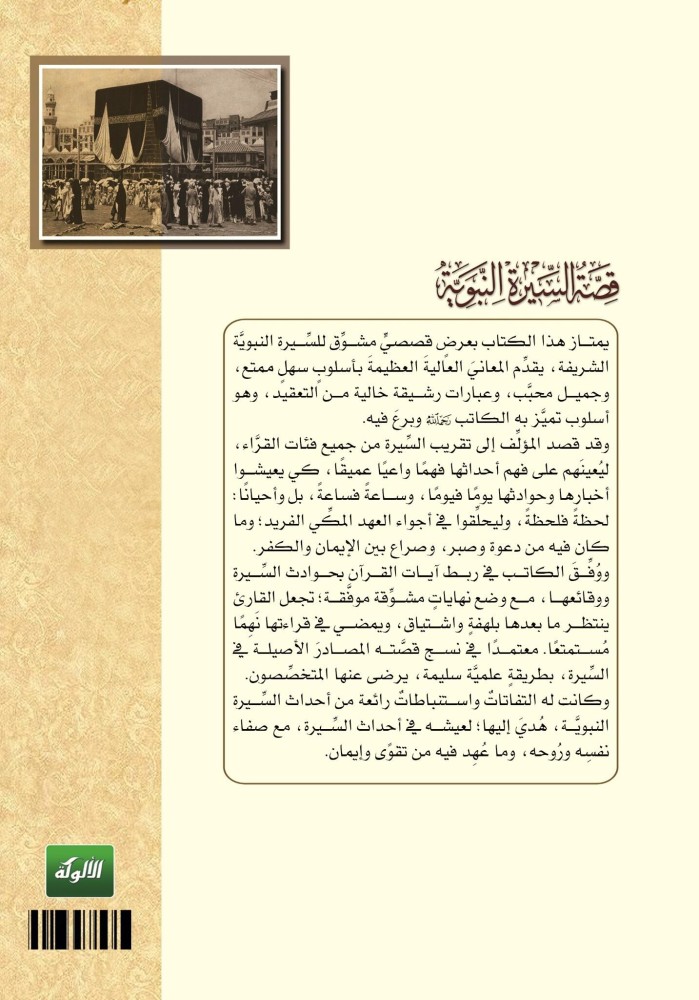 قِصَّةُ السِّيْرَةِ النَّبَوِيَّةِ
يمتـاز هذا الكتاب بعرضٍ قصصيٍّ مشـوِّق للسِّـيرة النبويَّة
الشريفة، يقدِّم المعانيَ العاليةَ العظيمةَ بأسلوبٍ سهلٍ ممتع،
وجميـل محبَّب، وعبارات رشـيقة خالية مـن التعقيد، وهو
أسلوب تميَّز به الكاتب رَحِمَهُ اللَّهُ وبرعَ فيه.
وقد قصد المؤلِّف إلى تقريب السِّيرة من جميع فئات القرَّاء،
ليُعينَهم على فهم أحداثها فهمًا واعيًا عميقًا، كي يعيشـوا
أخبارها وحوادثها يومًا فيومًا، وسـاعةً فساعةً، بل وأحيانًا:
لحظةً فلحظةً، وليحلِّقوا في أجواء العهد المكِّي الفريد؛ وما
كان فيه من دعوة وصبر، وصراع بين الإيمان والكفر.
ووُفِّـقَ الكاتـب في ربـط آيـات القـرآن بحـوادث السِّـيرة
ووقائعهـا، مـع وضع نهاياتٍ مشـوِّقة موفَّقـة؛ تجعل القارئ
ينتظـر ما بعدها بلهفةٍ واشـتياق، ويمضـي في قراءتها نَهِمًا
مُسـتمتعًا. معتمـدًا في نسـج قصَّتـه المصـادرَ الأصيلـة في
السِّيرة، بطريقةٍ علميَّة سليمة، يرضى عنها المتخصِّصون.
وكانت له التفاتاتٌ واسـتنباطاتٌ رائعة من أحداث السِّـيرة
النبويَّـة، هُديَ إليها؛ لعيشه في أحداث السِّـيرة، مع صفاء
نفسِه ورُوحه، وما عُهِد فيه من تقوًى وإيمان.
الألوكة